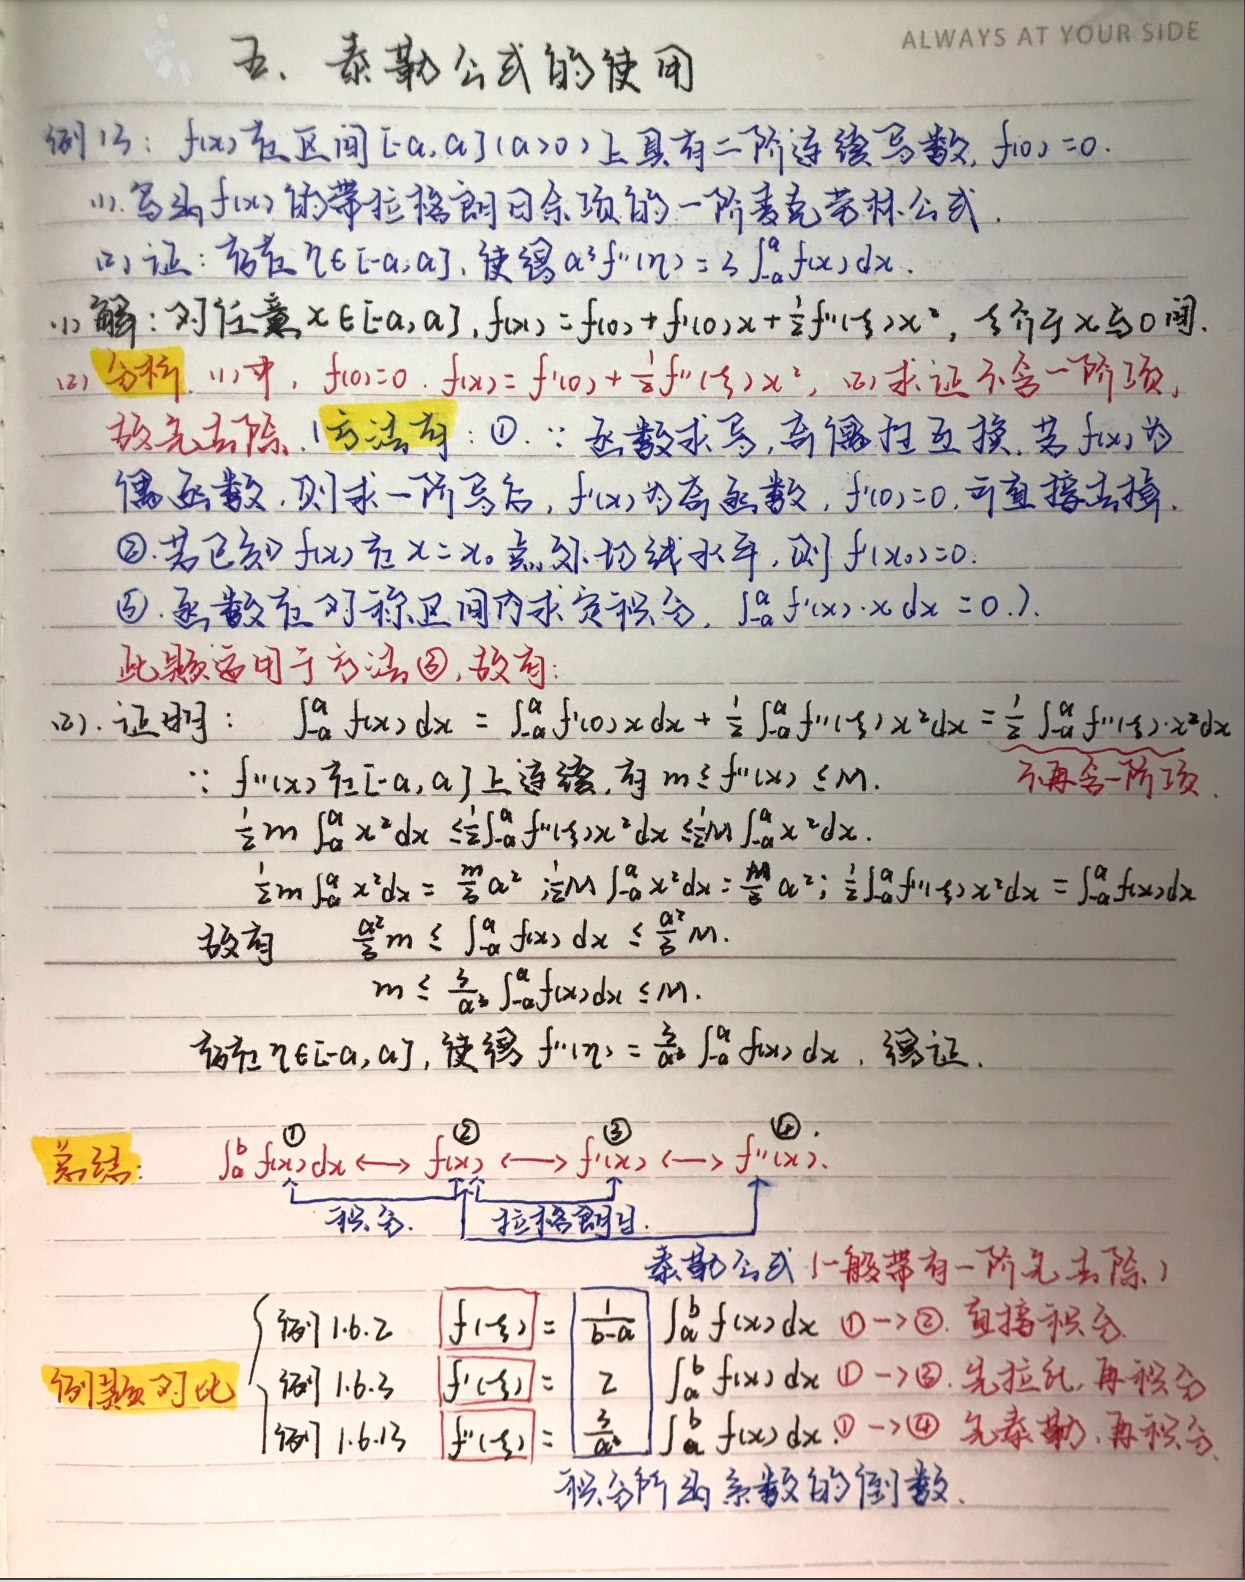 ALWAYS AT YOUR SIDE
五、泰勒公式的使用
例13：f(x)在区间[-a,a](a>0)上具有二阶连续导数，f(0)=0.
(1).写出f(x)的带拉格朗日余项的一阶麦克劳林公式.
(2)证：存在η∈[-a,a]，使得a³f''(η)=3∫₋ₐᵃf(x)dx.
(1)解：对任意x∈[-a,a]，f(x)=f(0)+f'(0)x+½f''(ξ)x²，ξ介于x与0间.
(2)分析.(1)中，f(0)=0.f(x)=f'(0)+½f''(ξ)x²，(2)求证不含一阶项，
故先去除.(方法有：①.∵函数求导，奇偶性互换.若f(x)为
偶函数，则求一阶导后，f'(x)为奇函数，f'(0)=0，可直接去掉.
②.若已知f(x)在x=x₀点处切线水平，则f'(x₀)=0.
③.函数在对称区间内求定积分，∫₋ₐᵃf'(x)·xdx=0.).
此题适用于方法③，故有：
(2).证明：∫₋ₐᵃf(x)dx=∫₋ₐᵃf'(0)xdx+½∫₋ₐᵃf''(ξ)x²dx=½∫₋ₐᵃf''(ξ)·x²dx
∵f''(x)在[-a,a]上连续，有m≤f''(x)≤M. 不再含一阶项.
½m∫₋ₐᵃx²dx≤½∫₋ₐᵃf''(ξ)x²dx≤½M∫₋ₐᵃx²dx.
½m∫₋ₐᵃx²dx=m/3 a²；½M∫₋ₐᵃx²dx=M/3 a²；½∫₋ₐᵃf''(ξ)x²dx=∫₋ₐᵃf(x)dx
故有 a²/3 m≤∫₋ₐᵃf(x)dx≤a²/3 M.
m≤3/a³ ∫₋ₐᵃf(x)dx≤M.
存在η∈[-a,a]，使得f''(η)=3/a³ ∫₋ₐᵃf(x)dx，得证.
① ② ③ ④.
总结：∫ₐᵇf(x)dx⟷f(x)⟷f'(x)⟷f''(x).
积分. 拉格朗日.
泰勒公式(一般带有一阶先去除)
例1.6.2 f(ξ)=1/(b-a) ∫ₐᵇf(x)dx ①→②.直接积分
例题对比 例1.6.3 f'(ξ)=2 ∫ₐᵇf(x)dx ①→③.先拉氏，再积分
例1.6.13 f''(ξ)=3/a³ ∫ₐᵇf(x)dx.①→④ 先泰勒，再积分.
积分所出系数的倒数.